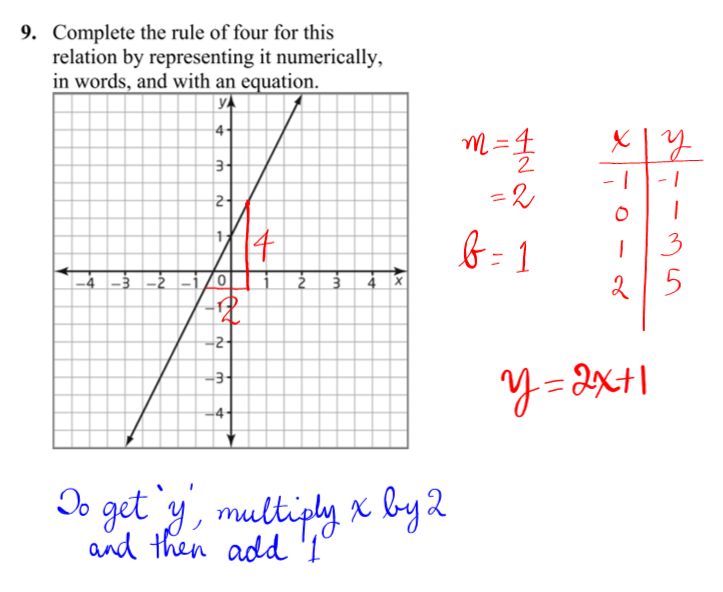 9. Complete the rule of four for this
relation by representing it numerically,
in words, and with an equation.
y
4
3
2
1
4
-4 -3 -2 -1 0 1 2 3 4 x
-1
2
-2
-3
-4
m = 4/2
= 2
b = 1
x | y
-1 | -1
0 | 1
1 | 3
2 | 5
y = 2x+1
To get 'y', multiply x by 2
and then add '1'